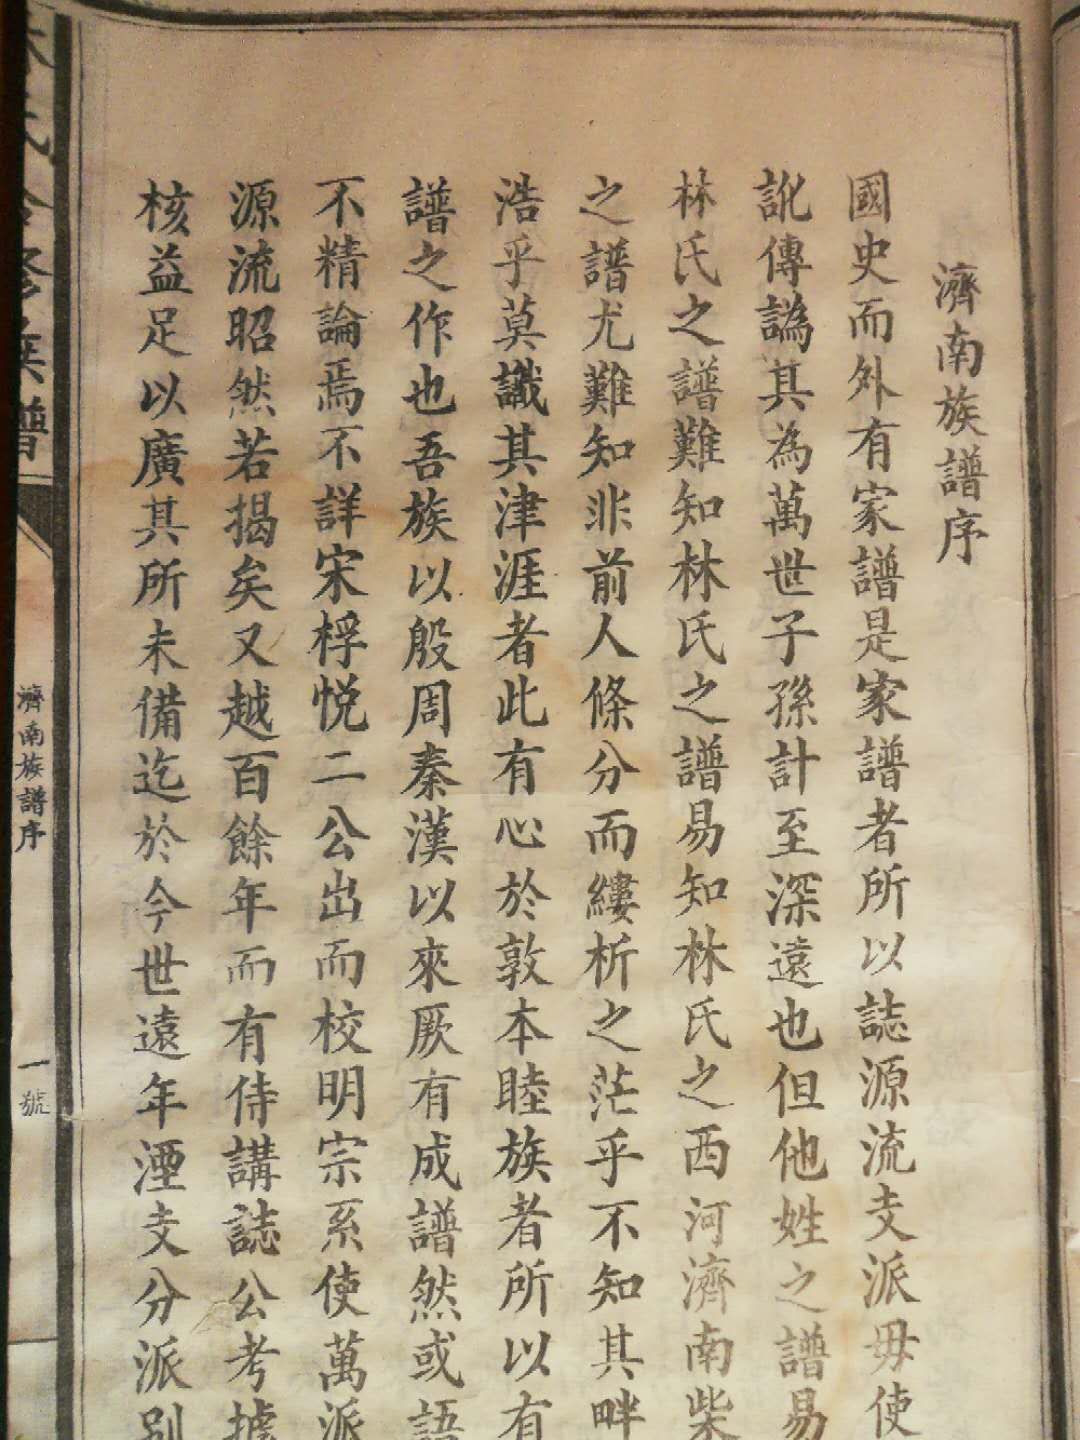 濟南族譜序
國史而外有家譜是家譜者所以誌源流支派毋使
訛傳譌其為萬世子孫計至深遠也但他姓之譜易
林氏之譜難知林氏之譜易知林氏之西河濟南柴
之譜尤難知非前人條分而縷析之茫乎不知其畔
浩乎莫讖其津涯者此有心於敦本睦族者所以有
譜之作也吾族以殷周秦漢以來厥有成譜然或語
不精論焉不詳宋桴悦二公出而校明宗系使萬派
源流昭然若揭矣又越百餘年而有侍講誌公考據
核益足以廣其所未備迄於今世遠年湮支分派別
氏合修族譜
濟南族譜序
一號